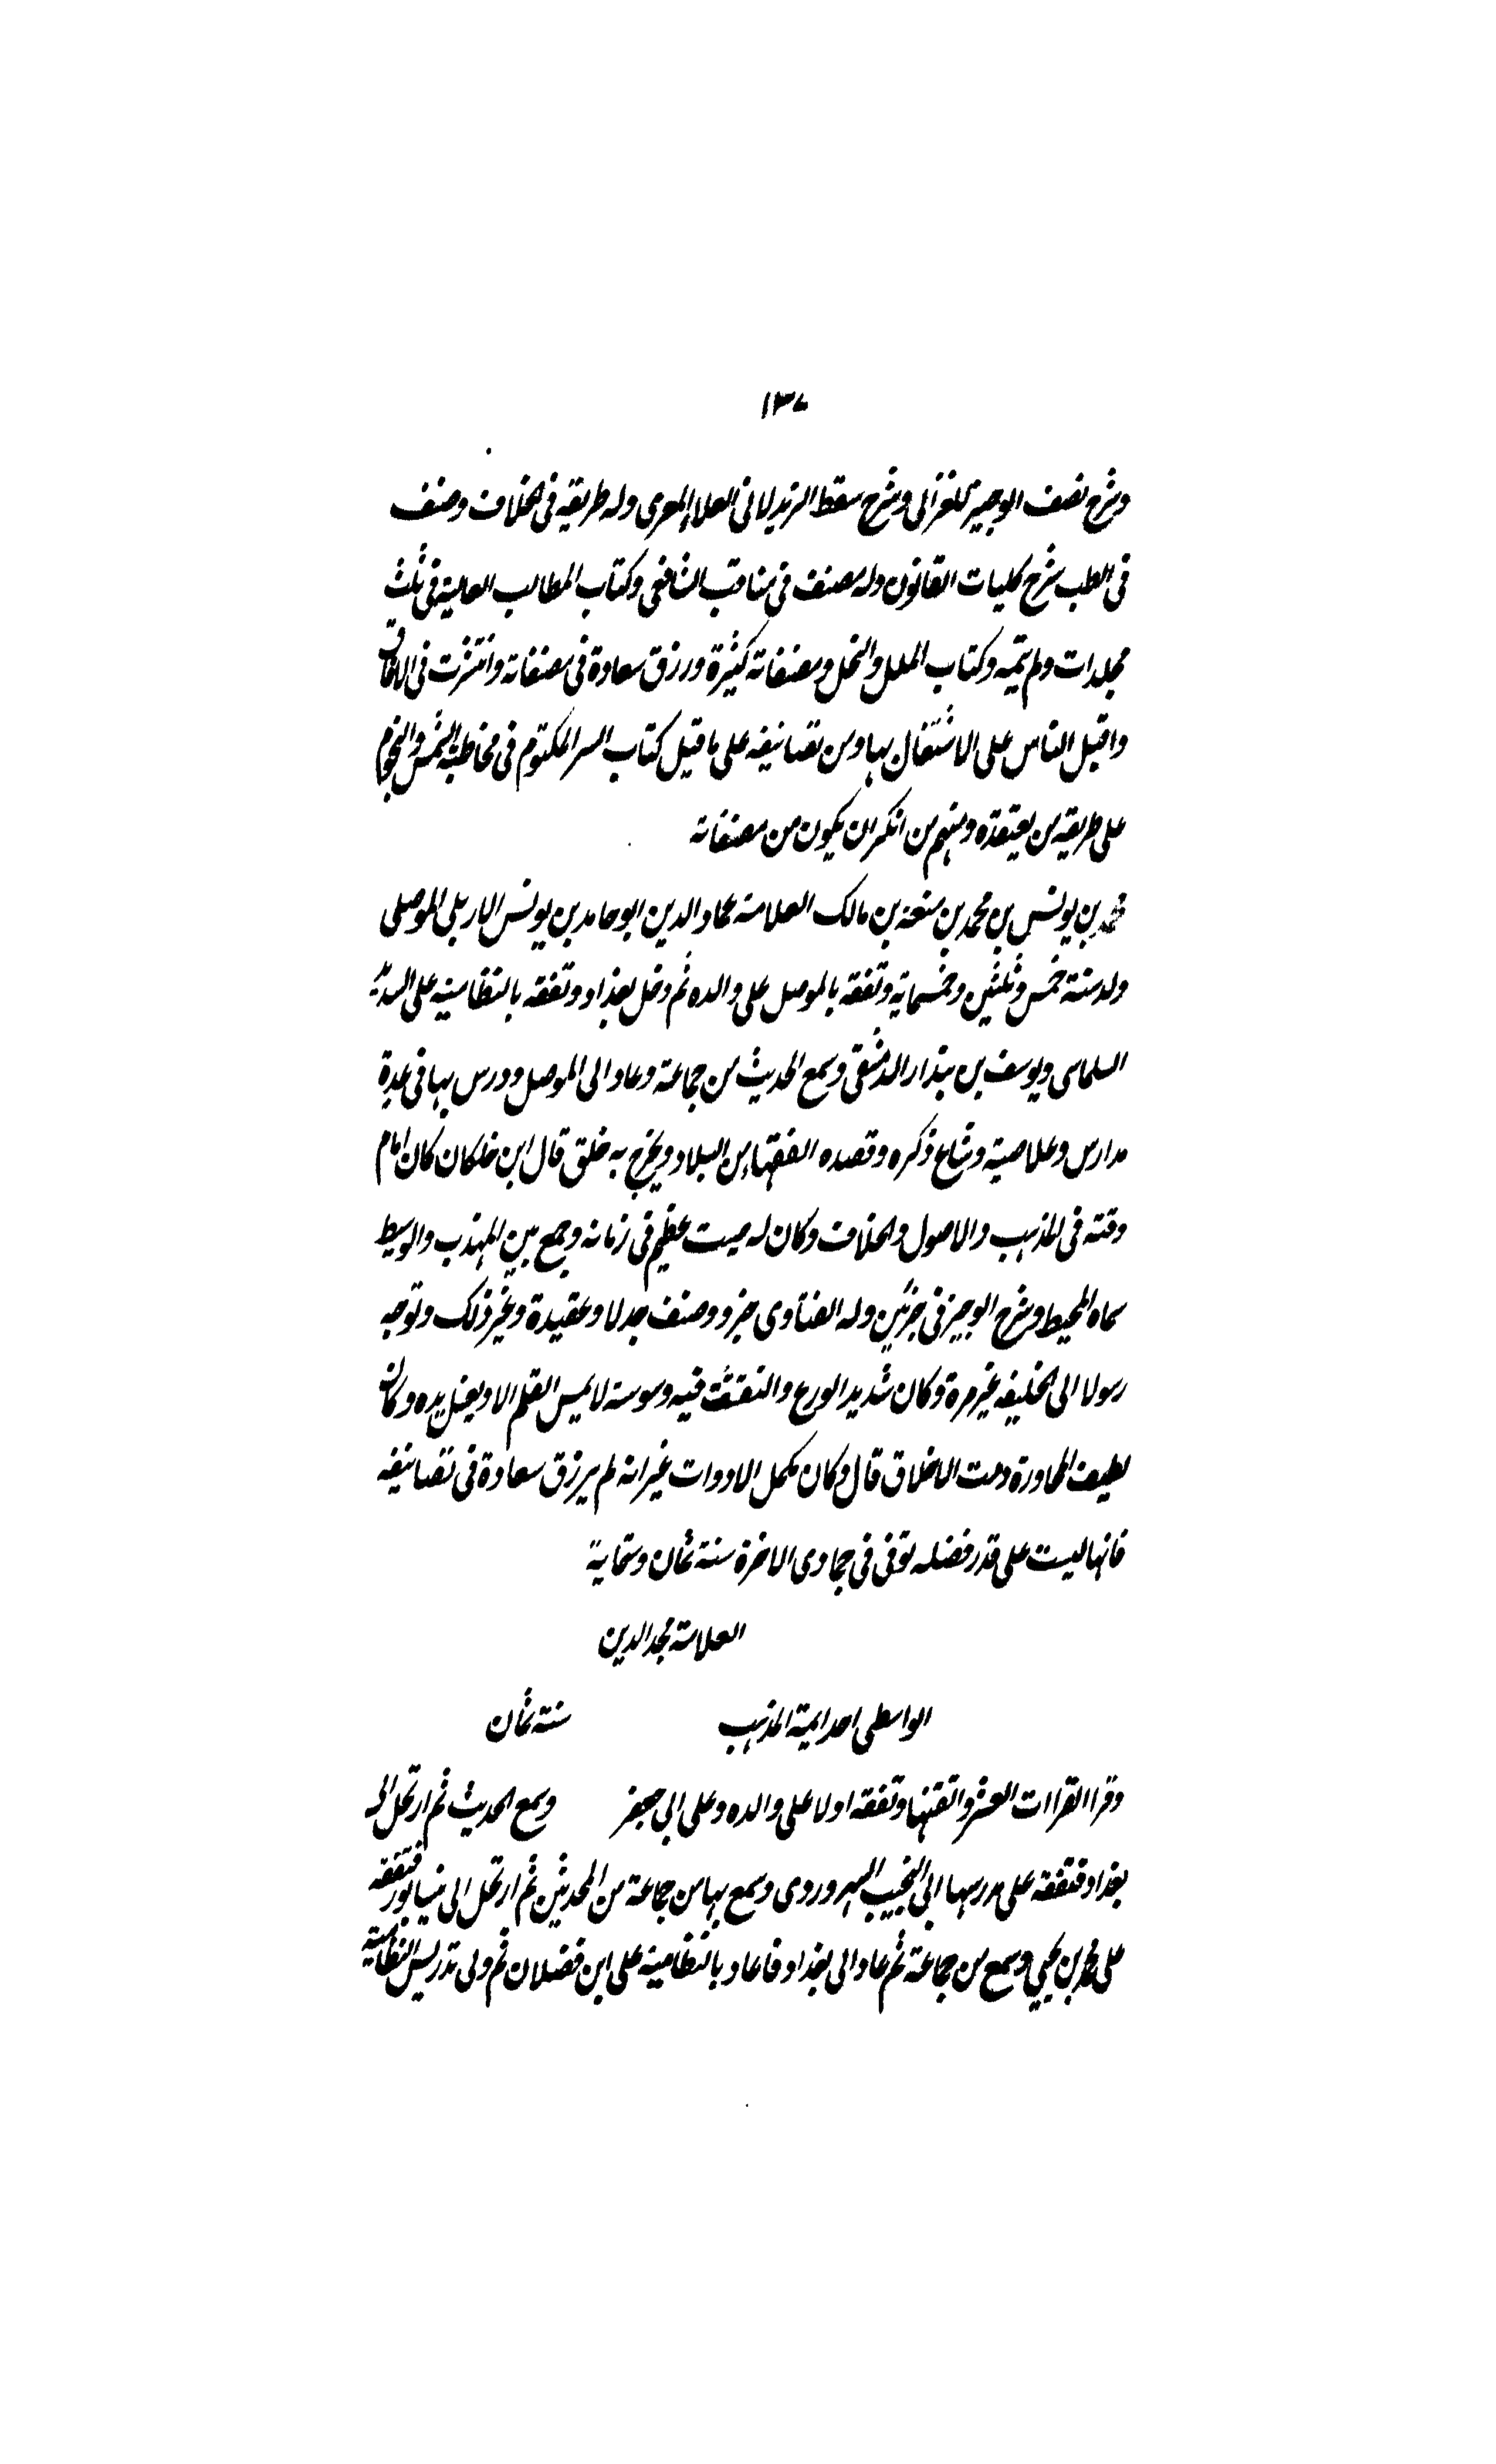 ١٣٧
وشرح نصف الوجيز للغزالى وشرح سقط الزند لابى العلاء المعرى وله طريقة فى الخلاف وصنف
فى الطب شرح كليات القانون وله مصنف فى مناقب الشافعى وكتاب المطالب العالية فى ثلث
مجلدات ولم يتمه وكتاب الملل والنحل ومصنفاته كثيرة ورزق سعادة فى مصنفاته وانتشرت فى الافاق
واقبل الناس على الاشتغال بها ومن تصانيفه على ما قيل كتاب السر المكتوم فى مخاطبة الشمس والنجوم
على طريقة من يعتقده ومنهم من انكر ان يكون من مصنفاته
محمد بن يونس بن محمد بن منعة بن مالك العلامة عماد الدين ابو حامد بن يونس الاربلى الموصلى
ولد سنة خمس وثلثين وخمسماية وتفقه بالموصل على والده ثم دخل بغداد وتفقه بالنظامية على السديد
السلماسى ويوسف بن بندار الدمشقى وسمع الحديث من جماعة وعاد الى الموصل ودرس بها فى عدة
مدارس وعلا صيته وشاع ذكره وقصده الفقهاء من البلاد وتخرج به خلق قال ابن خلكان كان امام
وقته فى المذهب والاصول والخلاف وكان له صيت عظيم فى زمانه وجمع بين المهذب والوسيط
سماه المحيط وشرح الوجيز فى جزئين وله الفتاوى جزو وصنف جدلا وعقيدة وغير ذلك وتوجه
رسولا الى الخليفة غير مرة وكان شديد الورع والتقشف فيه وسوسة لا يمس القلم الا ويغسل يده وكان
لطيف المحاورة دمث الاخلاق قال وكان مكمل الادوات غير انه لم يرزق سعادة فى تصانيفه
فانها ليست على قدر فضله توفى فى جمادى الاخرة سنة ثمان وستماية
العلامة مجد الدين
الواسطى احد ايمة المذهب سنة ثمان
وقرا القراات العشر واتقنها وتفقه اولا على والده وعلى ابى جعفر وسمع الحديث ثم ارتحل الى
بغداد فتفقه على مدرسها ابى النجيب السهروردى وسمع بها من جماعة من المحدثين ثم ارتحل الى نيسابور فتفقه
على محمد بن يحيى وسمع من جماعة ثم عاد الى بغداد فاعاد بالنظامية على ابن فضلان ثم ولى تدريس النظامية